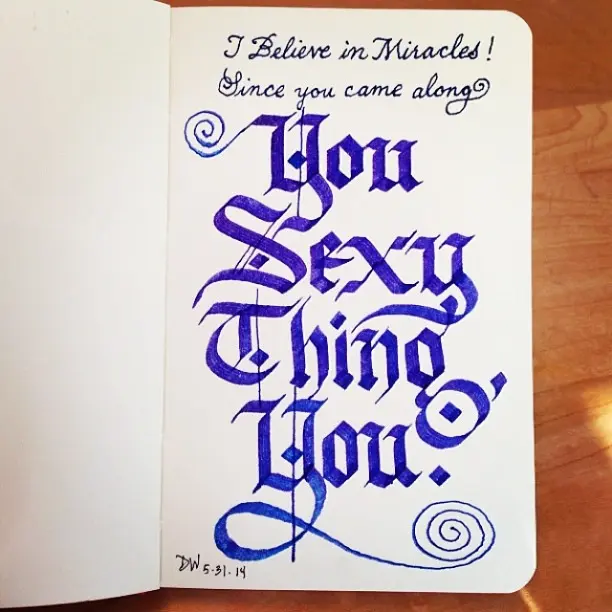 I Believe in Miracles!
Since you came along
You
Sexy
Thing,
You.
DW 5-31-14